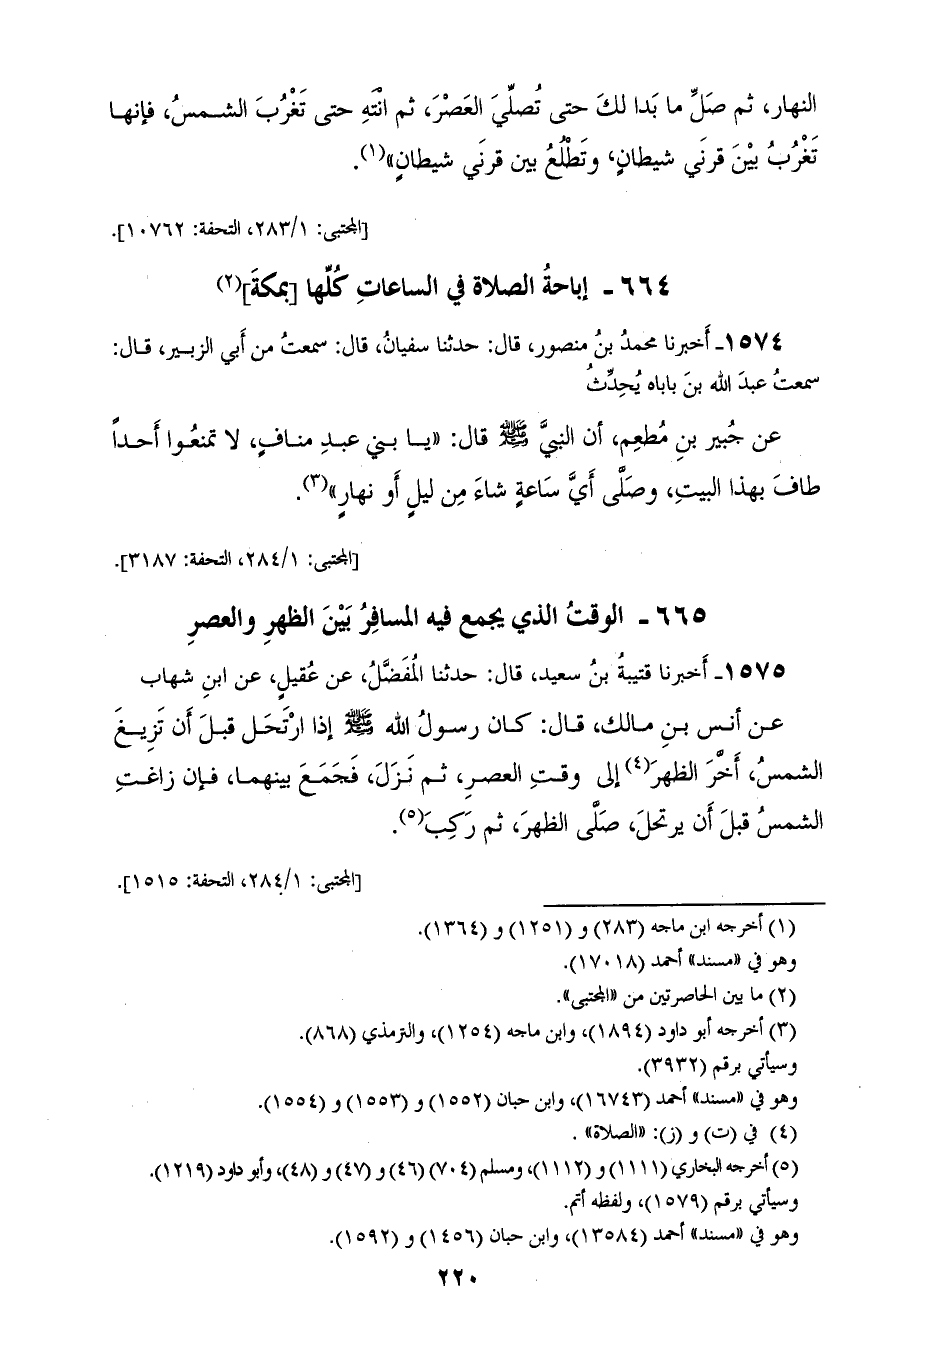 النهار، ثم صَلِّ ما بَدا لكَ حتى تُصلِّيَ العَصْرَ، ثم انْتَهِ حتى تَغْرُبَ الشـمسُ، فإنهـا
تَغْرُبُ بيْنَ قرنَي شيطانٍ، وتَطْلُعُ بين قرنَي شيطانٍ»(١).
[المجتبى: ٢٨٣/١، التحفة: ١٠٧٦٢].
٦٦٤ ـ إباحةُ الصلاة في الساعاتِ كُلِّها [بمكةَ](٢)
١٥٧٤ـ أَخبرنا محمدُ بنُ منصور، قال: حدثنا سفيانُ، قال: سمعتُ من أَبي الزبـير، قـال:
سمعتُ عبدَ الله بنَ باباه يُحدِّثُ
عن جُبير بنِ مُطعِم، أن النبيَّ ﷺ قال: «يـا بـني عبـدِ منـافٍ، لا تمنعُـوا أَحـداً
طافَ بهذا البيتِ، وصَلَّى أَيَّ سَاعةٍ شاءَ مِن ليلٍ أَو نهارٍ»(٣).
[المجتبى: ٢٨٤/١، التحفة: ٣١٨٧].
٦٦٥ ـ الوقتُ الذي يجمع فيه المسافِرُ بَيْنَ الظهرِ والعصرِ
١٥٧٥ـ أَخبرنا قتيبةُ بنُ سعيد، قال: حدثنا المُفَضَّلُ، عن عُقيلٍ، عن ابنِ شهاب
عـن أنـس بـنِ مـالك، قـال: كـان رسـولُ الله ﷺ إذا ارْتَحَـل قبـلَ أَن تَزِيـغَ
الشمسُ، أَخَّرَ الظهرَ(٤) إلى وقـتِ العصـرِ، ثـم نَـزَلَ، فَجَمَـعَ بينهمـا، فـإن زاغـتِ
الشمسُ قبلَ أَن يرتحلَ، صَلَّى الظهرَ، ثم رَكِبَ(٥).
[المجتبى: ٢٨٤/١، التحفة: ١٥١٥].
(١) أخرجه ابن ماجه (٢٨٣) و (١٢٥١) و (١٣٦٤).
وهو في «مسند» أحمد (١٧٠١٨).
(٢) ما بين الحاصرتين من «المجتبى».
(٣) أخرجه أبو داود (١٨٩٤)، وابن ماجه (١٢٥٤)، والترمذي (٨٦٨).
وسيأتي برقم (٣٩٣٢).
وهو في «مسند» أحمد (١٦٧٤٣)، وابن حبان (١٥٥٢) و (١٥٥٣) و (١٥٥٤).
(٤) في (ت) و (ز): «الصلاة» .
(٥) أخرجه البخاري (١١١١) و (١١١٢)، ومسلم (٧٠٤) (٤٦) و (٤٧) و (٤٨)، وأبو داود (١٢١٩).
وسيأتي برقم (١٥٧٩)، ولفظه أتم.
وهو في «مسند» أحمد (١٣٥٨٤)، وابن حبان (١٤٥٦) و (١٥٩٢).
٢٢٠